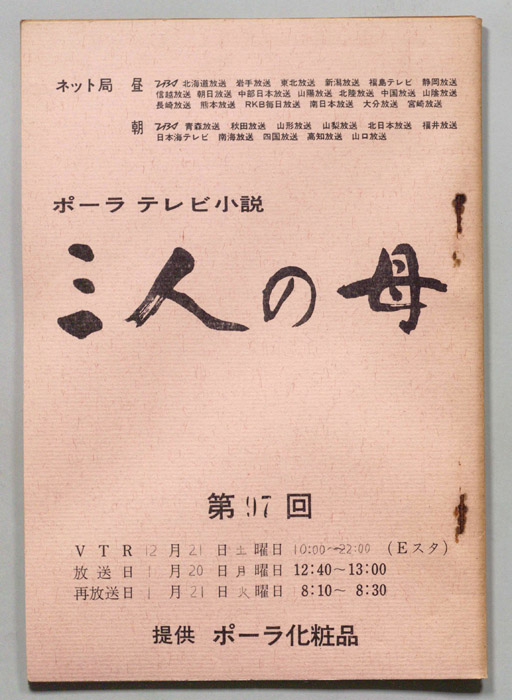 ネット局 昼 TBS 北海道放送 岩手放送 東北放送 新潟放送 福島テレビ 静岡放送
信越放送 朝日放送 中部日本放送 山陽放送 北陸放送 中国放送 山陰放送
長崎放送 熊本放送 RKB毎日放送 南日本放送 大分放送 宮崎放送
朝 TBS 青森放送 秋田放送 山形放送 山梨放送 北日本放送 福井放送
日本海テレビ 南海放送 四国放送 高知放送 山口放送
ポーラ テレビ小説
三人の母
第97回
VTR 12月21日土曜日 10:00~22:00 (Eスタ)
放送日 1月20日月曜日 12:40~13:00
再放送日 1月21日火曜日 8:10~ 8:30
提供 ポーラ化粧品